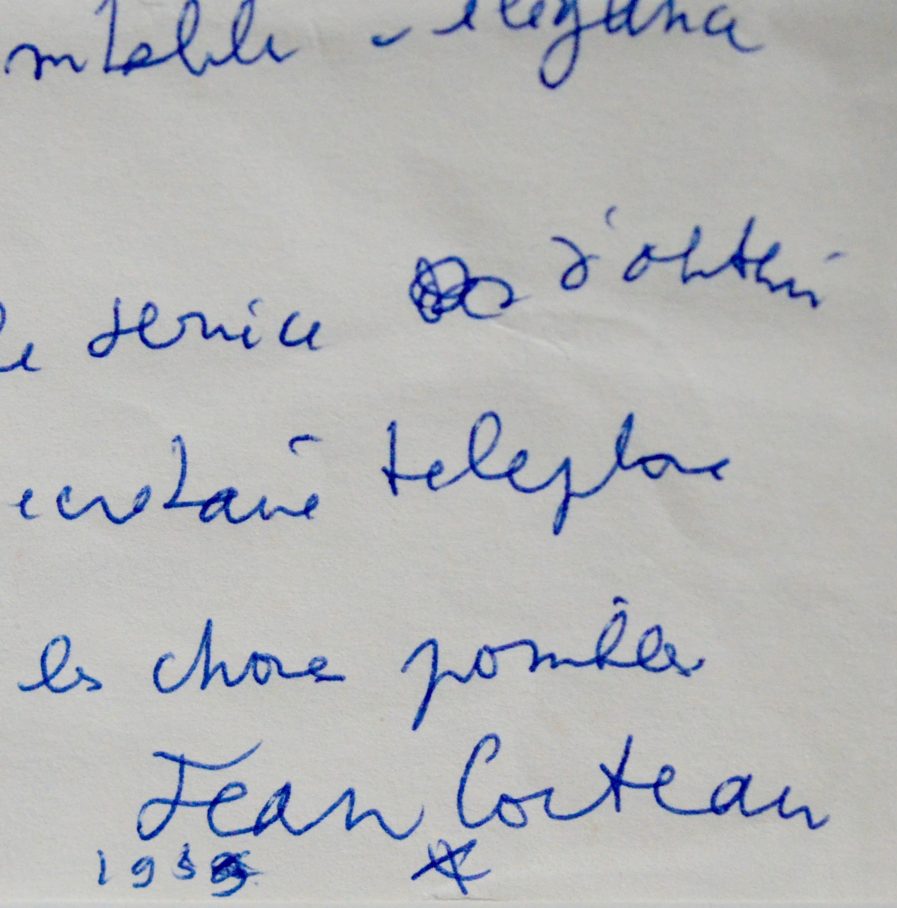 élégance
le service d'obtenir
ecrétaire telephone
les choses possibles
Jean Cocteau
195